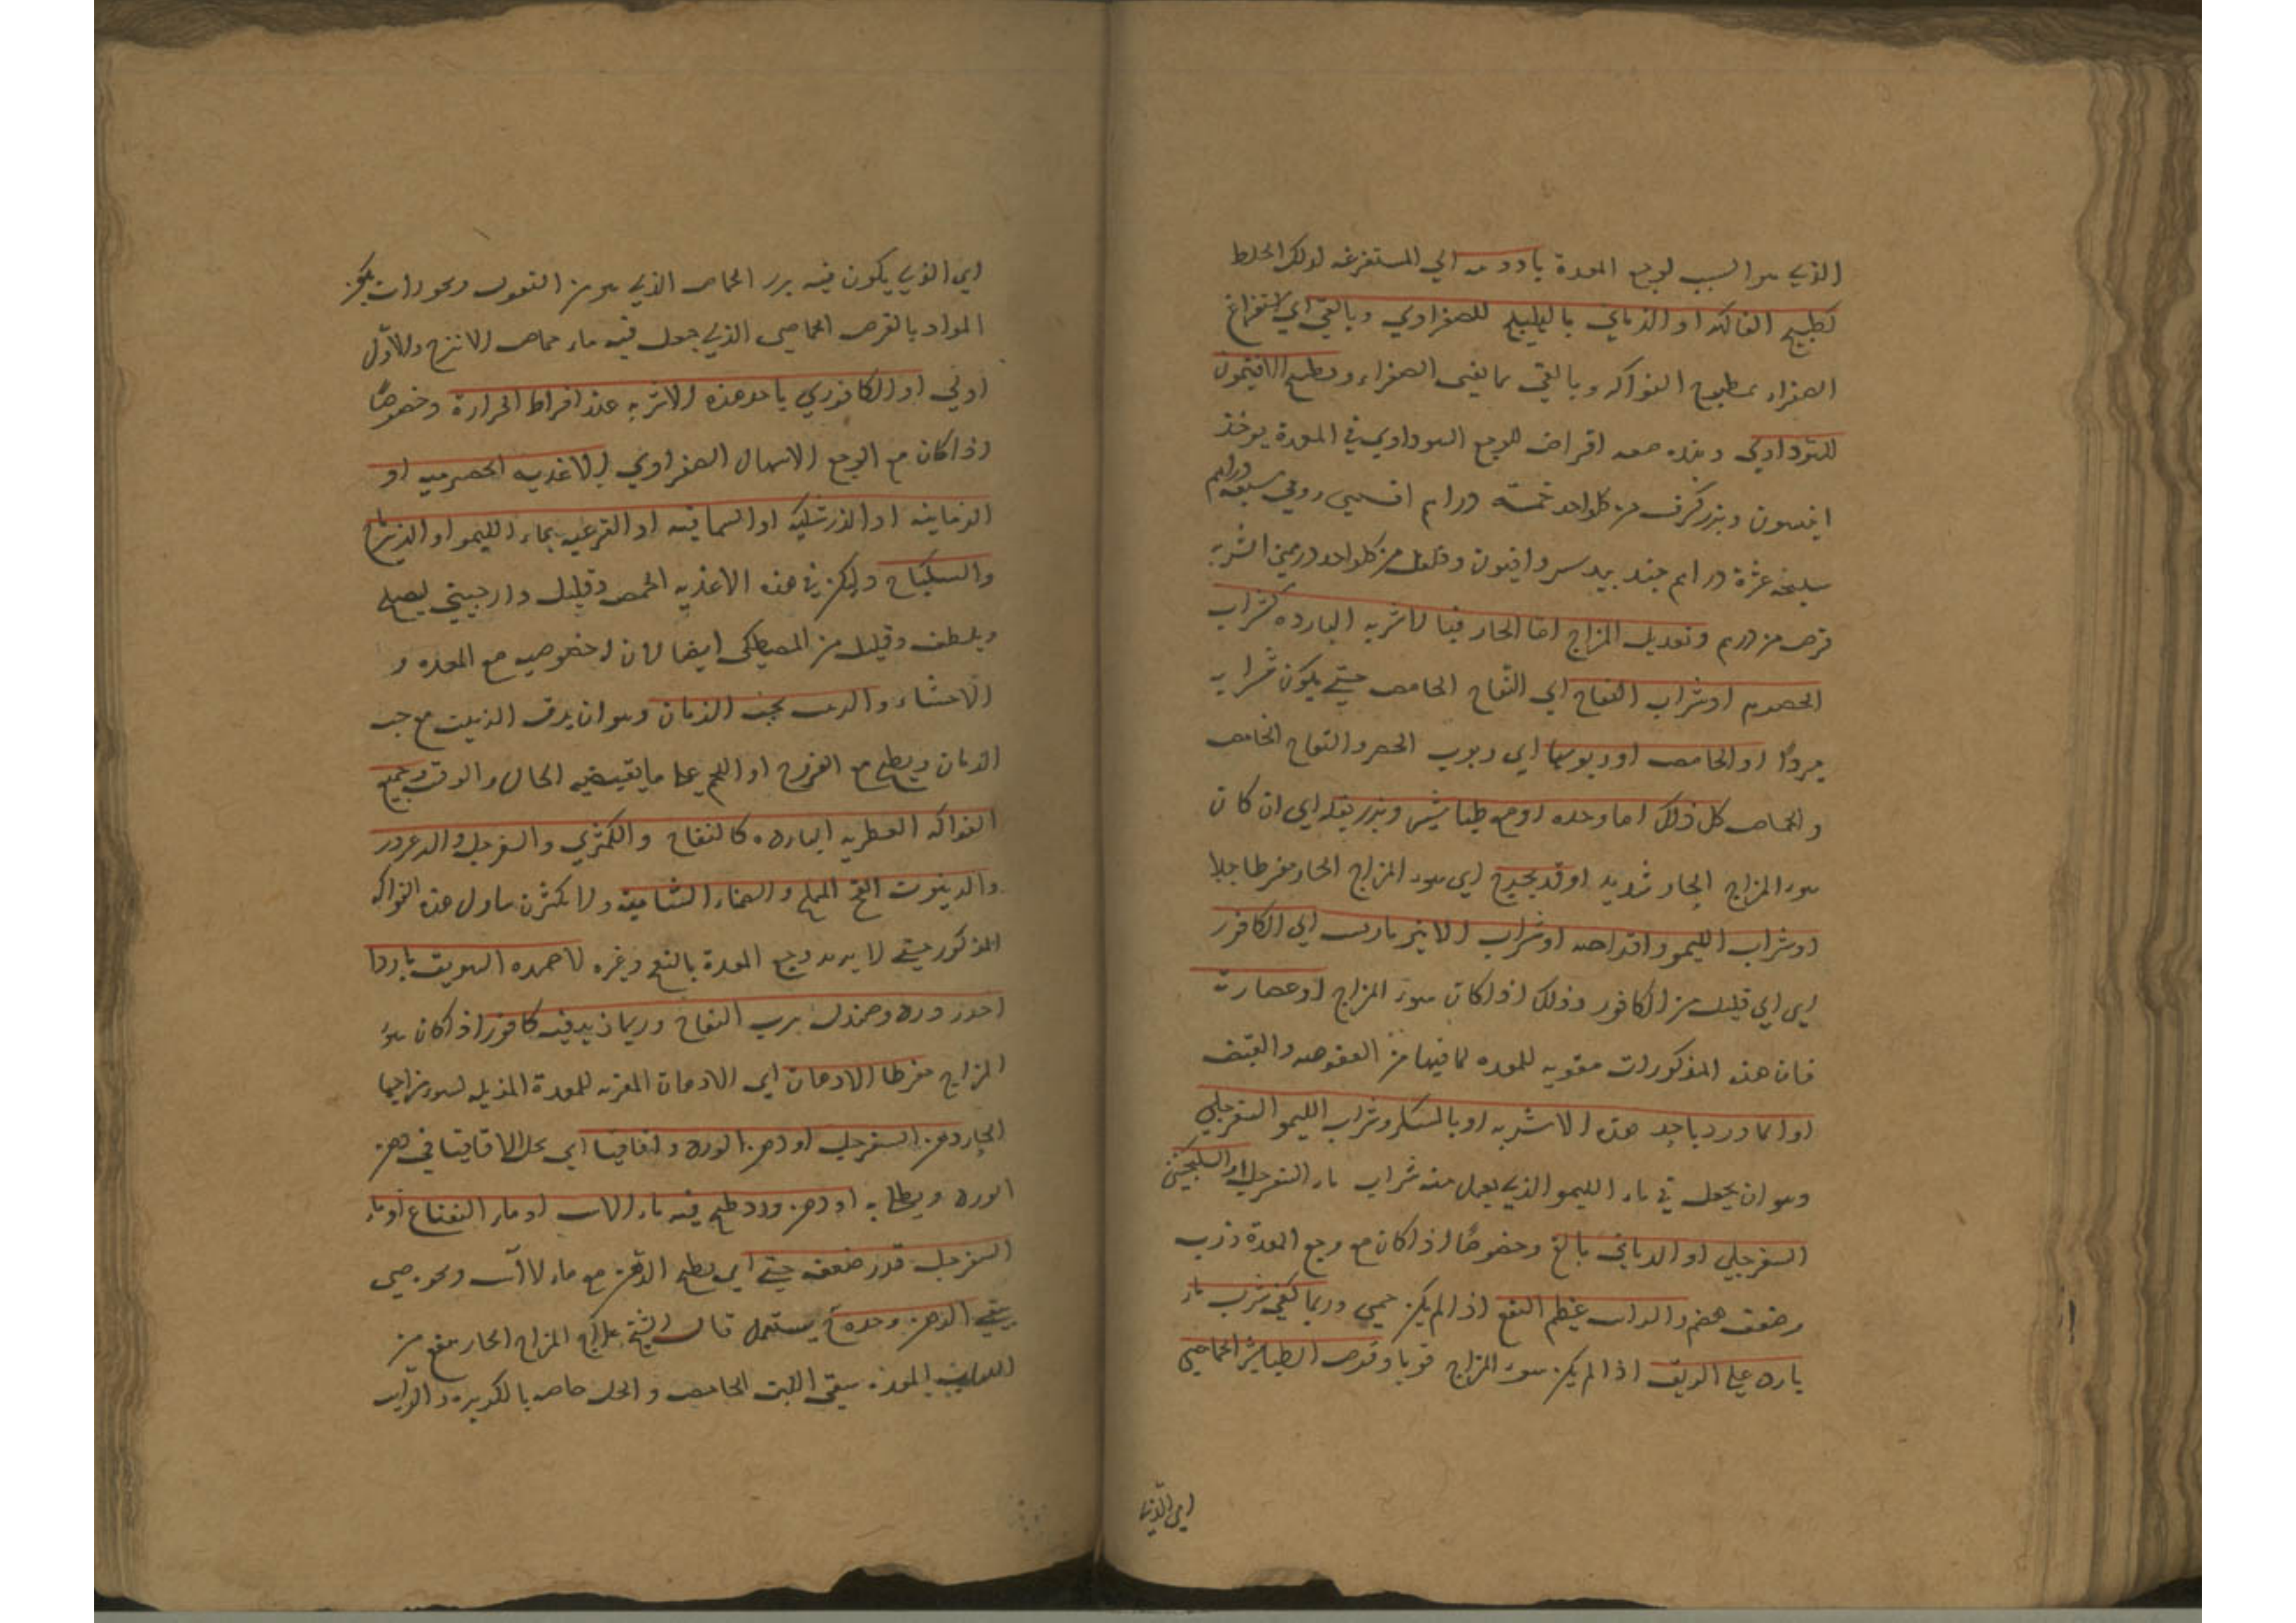 الذي هو السبب لوجع المعدة بادوية الي المستفرغة لذلك الخلط
كطبيخ الفاكهة او الرماني بالهليلج للصفراوي وبالقي اي استفراغ
الصفراء بمطبوخ الفواكه وبالقي بما يقي الصفراء وبطبيخ الافتيمون
للسوداوي وهذه صفه اقراص لوجع السوداوي في المعدة يوخذ
انيسون وبزر كرفس من كل واحد خمسة دراهم افسنتين رومي سبعة دراهم
سليخه عشرة دراهم جند بيدستر وافيون وفلفل من كل واحد درهمين الشربه
قرص من درهم وتعديل المزاج اما الحار فبالاشربه البارده كشراب
الحصرم او شراب التفاح اي التفاح الحامض حتي يكون شرابه
مبردًا او الحامض او ربوبها اي ربوب الحصرم والتفاح الحامض
والحماض كل ذلك اما وحده او مع طباشير وبزر بقله اي ان كان
سوء المزاج الحار شديد او قد يحتاج اي سوء المزاج الحار مفرطا جدا
او شراب الليمو واقراصه او شراب الانبرباريس الي الكافور
اي الي قليل من الكافور وذلك اذا كان سوء المزاج او عصارته
فان هذه المذكورات مقويه للمعده لما فيها من العفوصه والقبض
او الماورد باحد هذه الاشربه او بالسكر وشراب الليمو السفرجلي
وهو ان يجعل في ماء الليمو الذي يعمل منه شراب ماء السفرجل او السكنجبين
السفرجلي او الرماني بالغ وخصوصًا اذا كان مع وجع المعدة ذرب
وضعف هضم والراب عظيم النفع اذا لم يكن حمي وربما كفي شرب ماء
بارد علي الريق اذا لم يكن سوء المزاج قويا وقرص الطباشير الحماضي
اي الذي يكون فيه بزر الحماض الذي هو من البقول ويجوز ان يكون
المراد بالقرص الحماضي الذي جعل فيه ماء حماض الاترج والاول
اولي او الكافوري باحد هذه الاشربه عند افراط الحرارة وخصوصًا
اذا كان مع الوجع الاسهال الصفراوي والاغذيه الحصرميه او
الرمانيه او الزرشكيه او السماقيه او القرعيه بماء الليمو او الزيرباج
والسكباج وليكن في هذه الاغذيه الحمص وقليل دارچيني ليصلح
ويلطف وقليل من المصطكي ايضا لان له خصوصيه مع المعده و
الاحشاء والزبيب بحب الرمان وهو ان يدق الزبيب مع حب
الرمان ويطبخ مع الفروج او اللحم علي ما يقتضيه الحال والوقت وجميع
الفواكه العطريه البارده كالتفاح والكمثري والسفرجل والزعرور
المذكور حتي لا يزيد وجع المعدة بالنفخ وغيره الاضمده السويق باردا
او ورد وصندل برب التفاح وربما زيد فيه كافور اذا كان سوء
المزاج مفرطا الادهان اي الادهان المقويه للمعدة المزيله لسوء مزاجها
الحار دهن السفرجل او دهن الورد واقاقيا اي يحل الاقاقيا في دهن
الورد ويطلي به او دهن ورد طبخ فيه ماء الاس او ماء النعناع او ماء
السفرجل قدر ضعفه حتي اي يطبخ الدهن مع ماء الآس ونحوه حتي
يبقي الدهن وحده ثم يستعمل قال الشيخ علاج المزاج الحار ينفع من